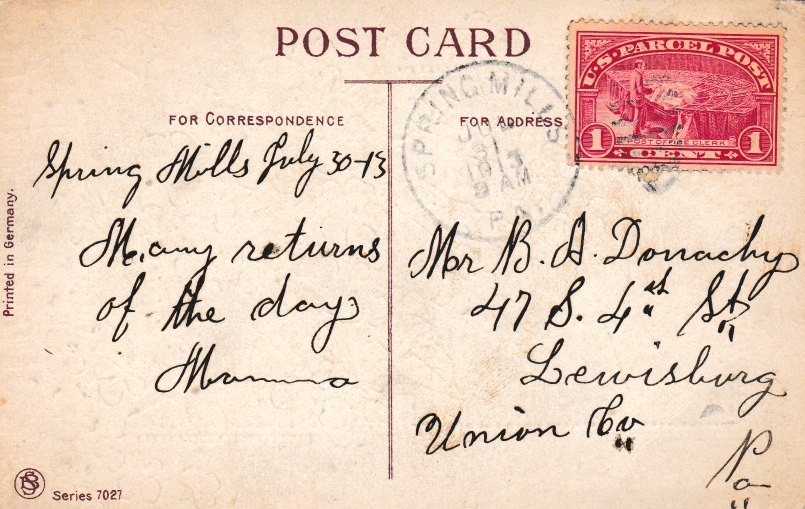 POST CARD
FOR CORRESPONDENCE
FOR ADDRESS
U.S. PARCEL POST
1
POST OFFICE CLERK
1
CENT
SPRING MILLS
31
1913
9 AM
PA.
Spring Mills July 30-13
Many returns
of the day
Mamma
Mr B. A. Donachy
47 S. 4th St
Lewisburg
Union Co
Pa
Printed in Germany.
Series 7027